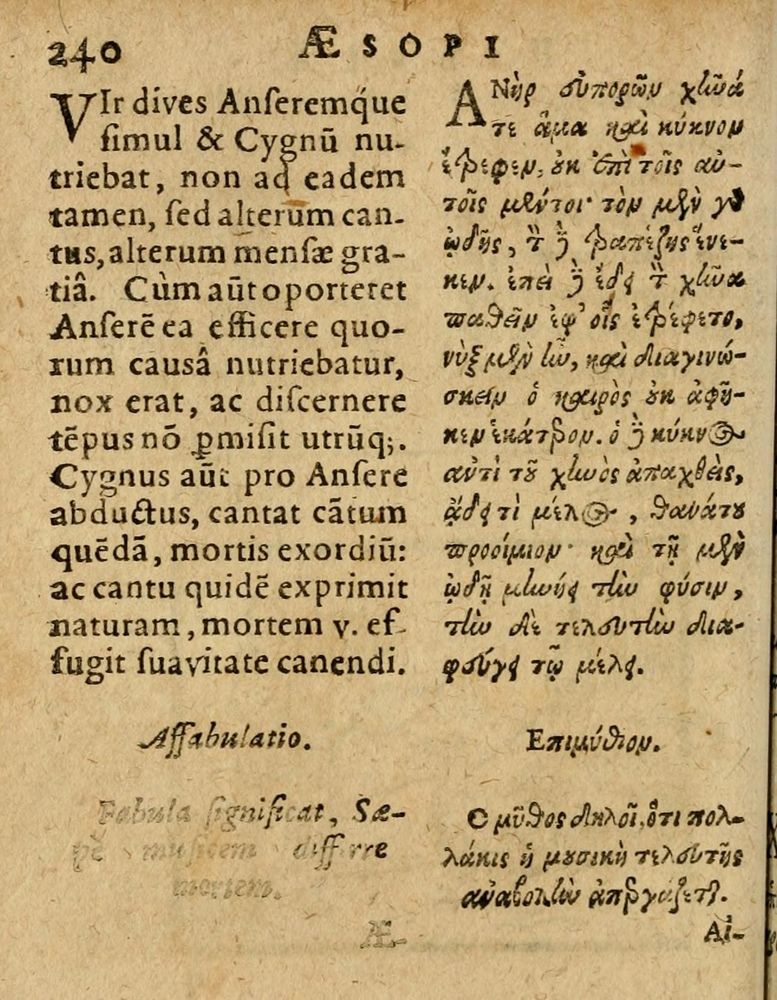 240 ÆSOPI
VIr dives Anſeremq́ue
ſimul & Cygnū nu-
triebat, non ad eadem
tamen, ſed alterum can-
tus, alterum menſæ gra-
tiâ. Cùm aūt oporteret
Anſerē ea efficere quo-
rum causâ nutriebatur,
nox erat, ac diſcernere
tēpus nō ꝑmiſit utrūq;.
Cygnus aūt pro Anſere
abductus, cantat cātum
quēdā, mortis exordiū:
ac cantu quidē exprimit
naturam, mortem v. ef-
fugit ſuavitate canendi.
Affabulatio.
Fabula ſignificat, Sæ-
pè muſicem differre
mortem.
Æ-
ΑΝὴρ ευπορῶν χῆνά
τε ἅμα καὶ κύκνον
ἔτρεφεν, ȣκ ἐπὶ τοῖς αυ-
τοῖς μέντοι· τὸν μὲν γδ
ᾠδῆς, τ̀ ȷ̀ τραπέζης ἕνε-
κεν. ἐπεὶ ȷ̀ ἔδει τ̀ χῆνα
παθεῖν ἐφ' οἷς ἐτρέφετο,
νὺξ μὲν ἦν, καὶ διαγινώ-
σκειν ὁ καιρὸς ȣκ ἀφῆ-
κεν ἑκάτερον. ὁ ȷ̀ κύκνος
αντὶ τȣ͂ χηνὸς ἀπαχθεὶς,
ᾄδει τὶ μέλος, θανάτȣ
προοίμιον· καὶ τῇ μὲν
ᾠδῇ μηνύει τὴν φύσιν,
τὴν δὲ τελευτὴν δια-
φεύγει τῷ μέλει.
Επιμύθιον.
Ο μῦθος δηλοῖ, ὅτι πολ-
λάκις ἡ μȣσικὴ τελευτῆς
αναβολὴν ἀπεργάζεται.
Αἰ-